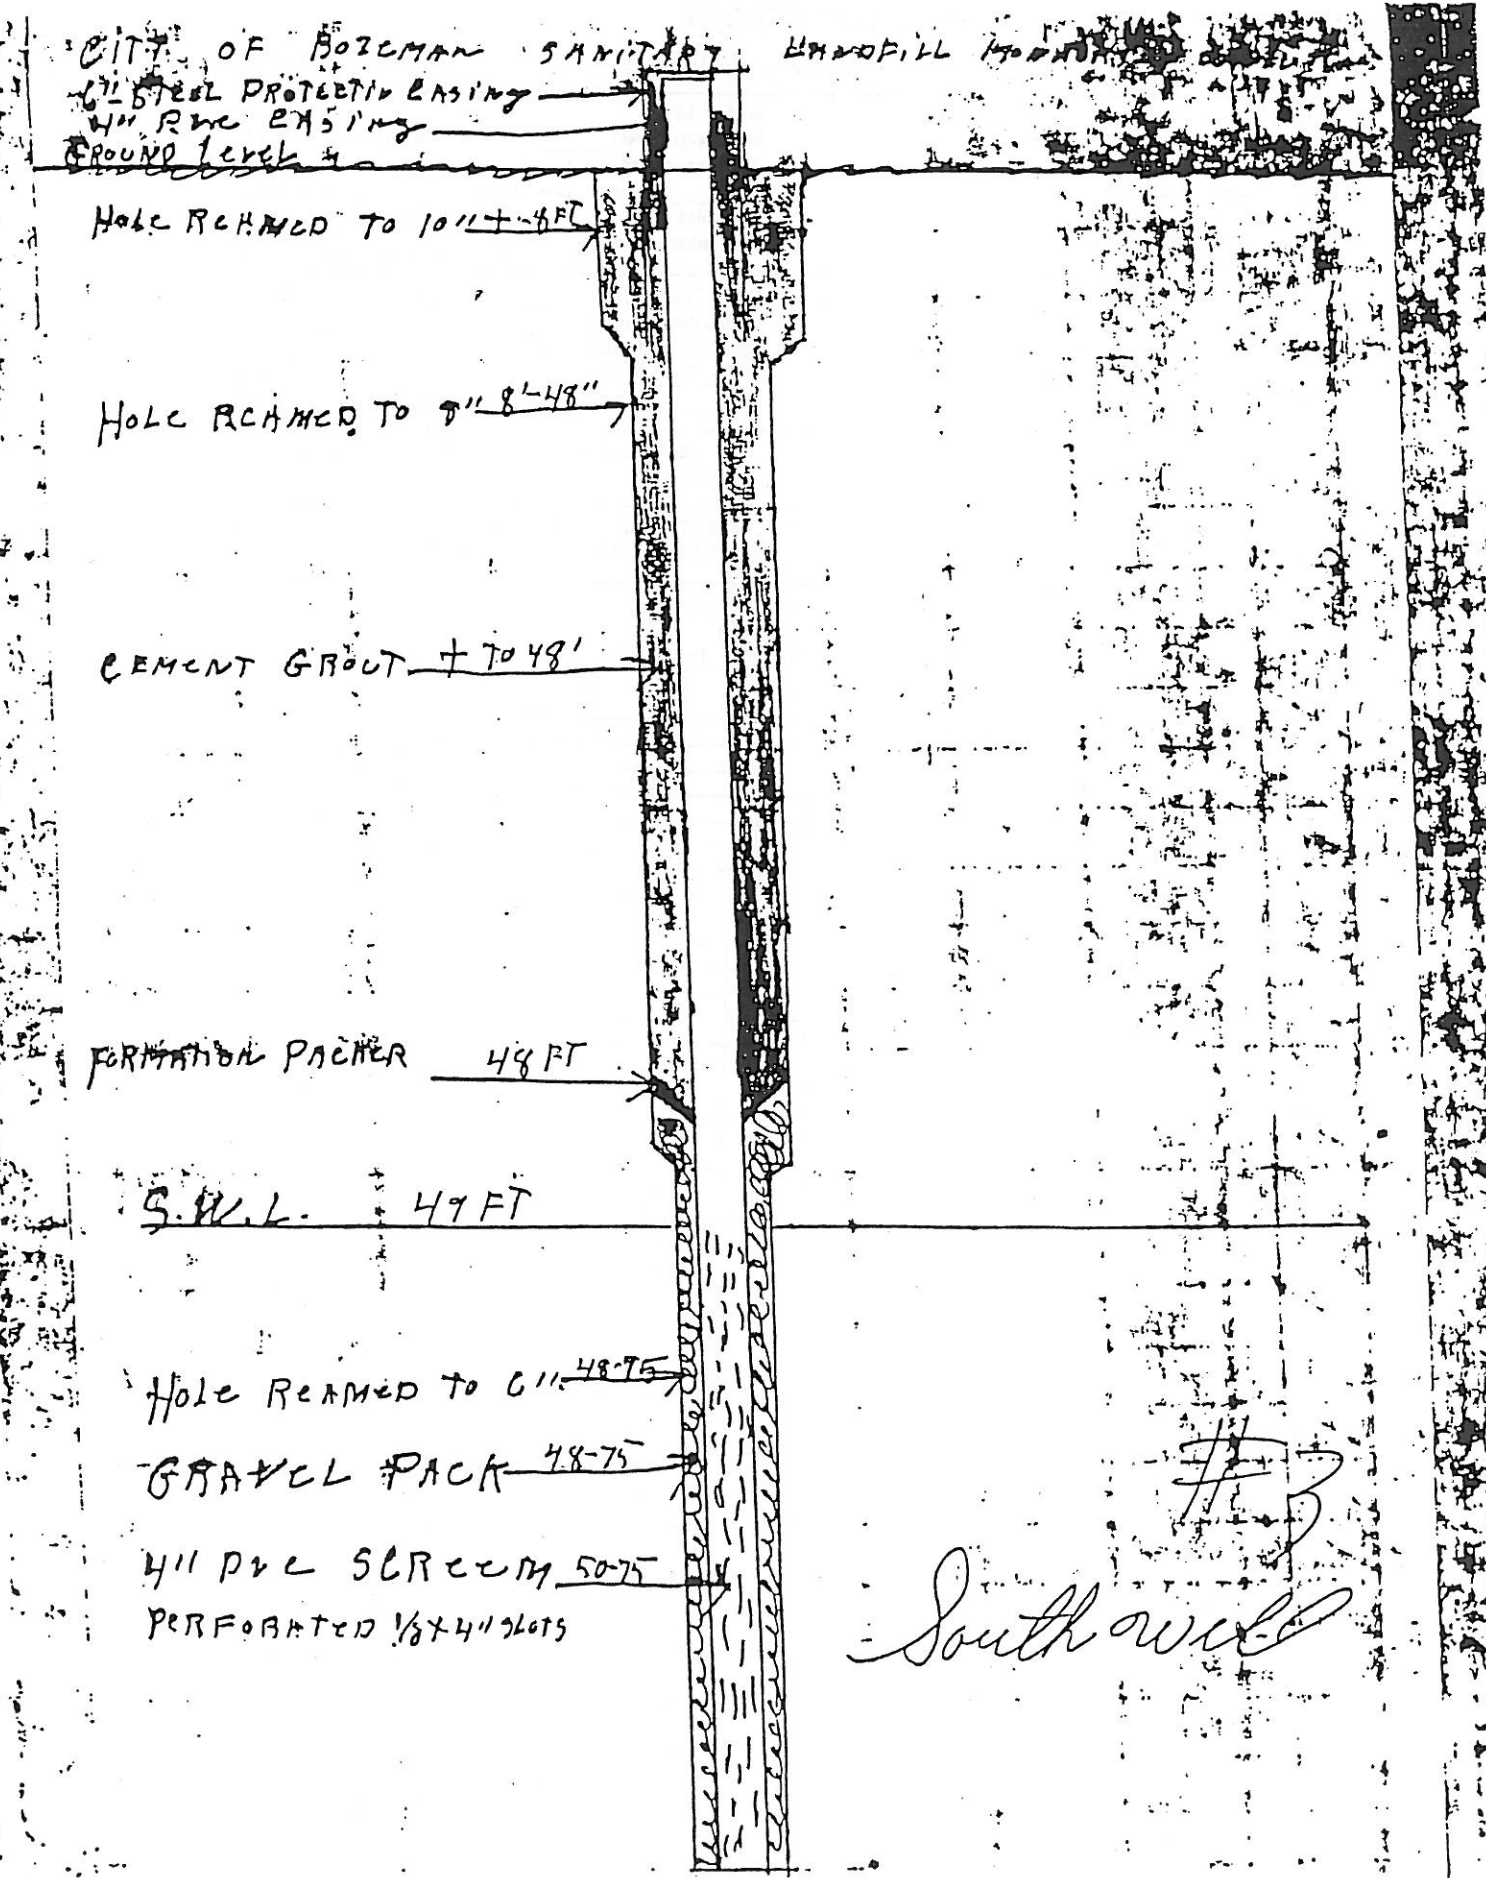 CITY OF BOZEMAN SANITARY LANDFILL
6" STEEL PROTECTIV CASING
4" PVC CASING
GROUND LEVEL
HOLE REAMED TO 10" + -8 FT
HOLE REAMED TO 8" 8'-48"
CEMENT GROUT + TO 48'
FORMATION PACKER 48 FT
S.W.L. 49 FT
HOLE REAMED TO 6" 48-75
GRAVEL PACK 48-75
4" PVC SCREEN 50-75
PERFORATED 1/8 X 4" SLOTS
#3
South well